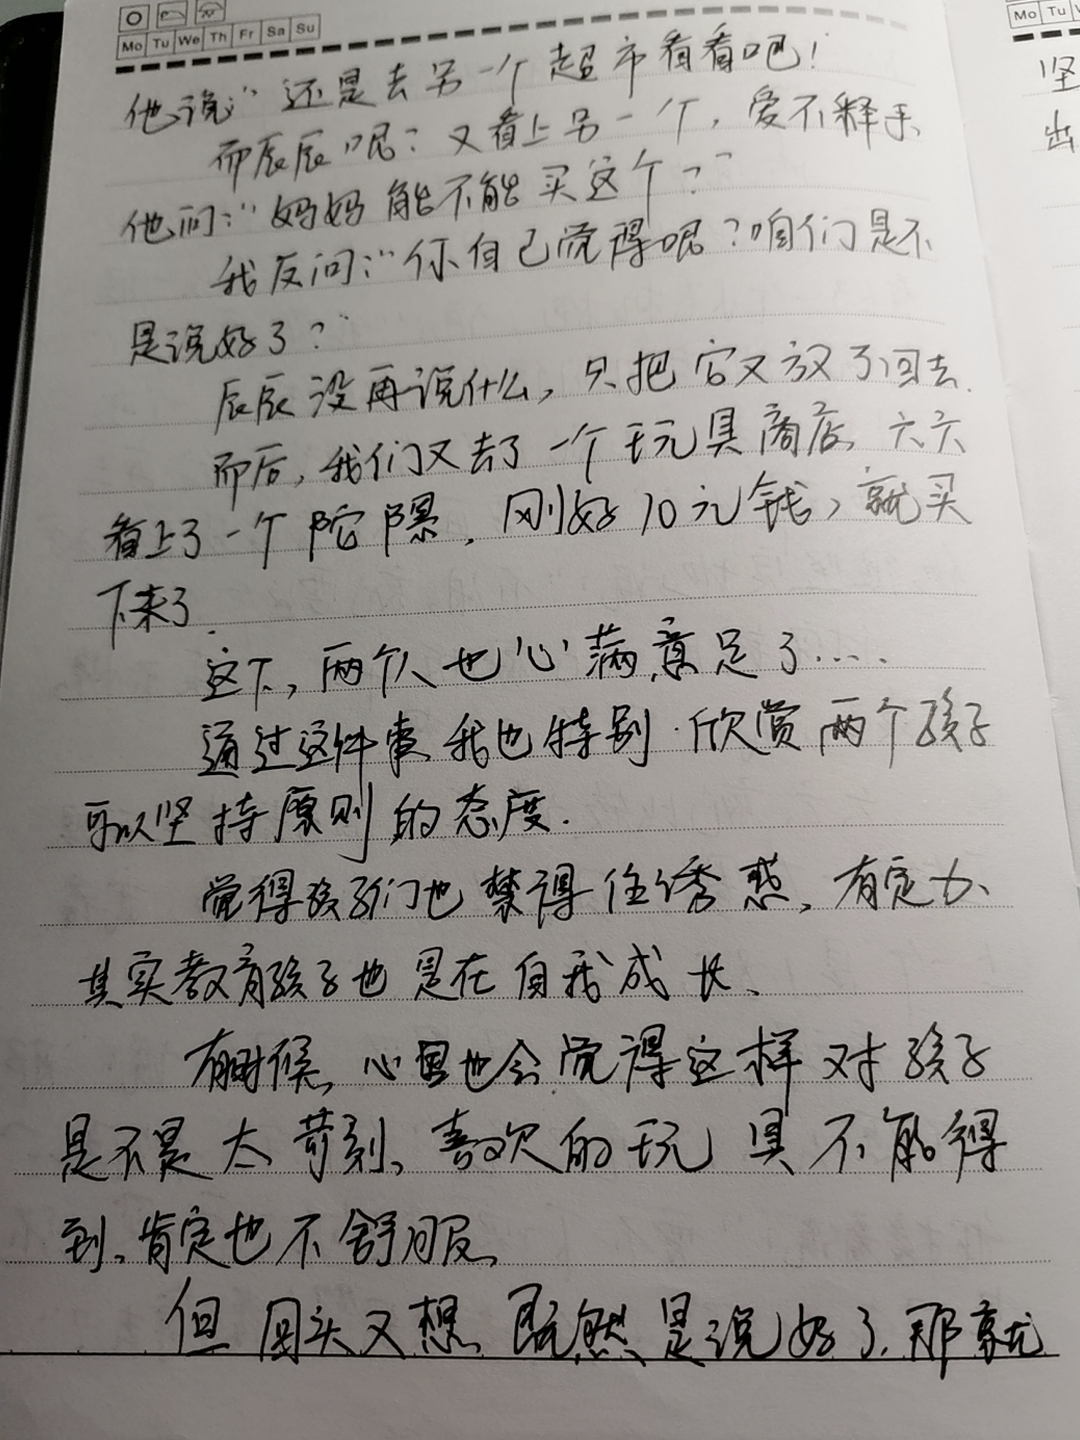 Mo Tu We Th Fr Sa Su
他说:“还是去另一个超市看看吧!
而辰辰呢?又看上另一个,爱不释手、
他问:“妈妈能不能买这个?”
我反问:“你自己觉得呢?咱们是不
是说好了?
辰辰没再说什么,只把它又放了回去.
而后,我们又去了一个玩具商店,六六
看上了一个陀螺,刚好10元钱,就买
下来了.
这下,两个人也心满意足了....
通过这件事,我也特别欣赏两个孩子
可以坚持原则的态度.
觉得孩子们也禁得住诱惑,有定力、
其实教育孩子也是在自我成长、
有时候,心里也会觉得这样对孩子
是不是太苛刻、喜欢的玩具不能得
到、肯定也不舒服、
但回头又想,既然是说好了,那就
Mo Tu
坚
出